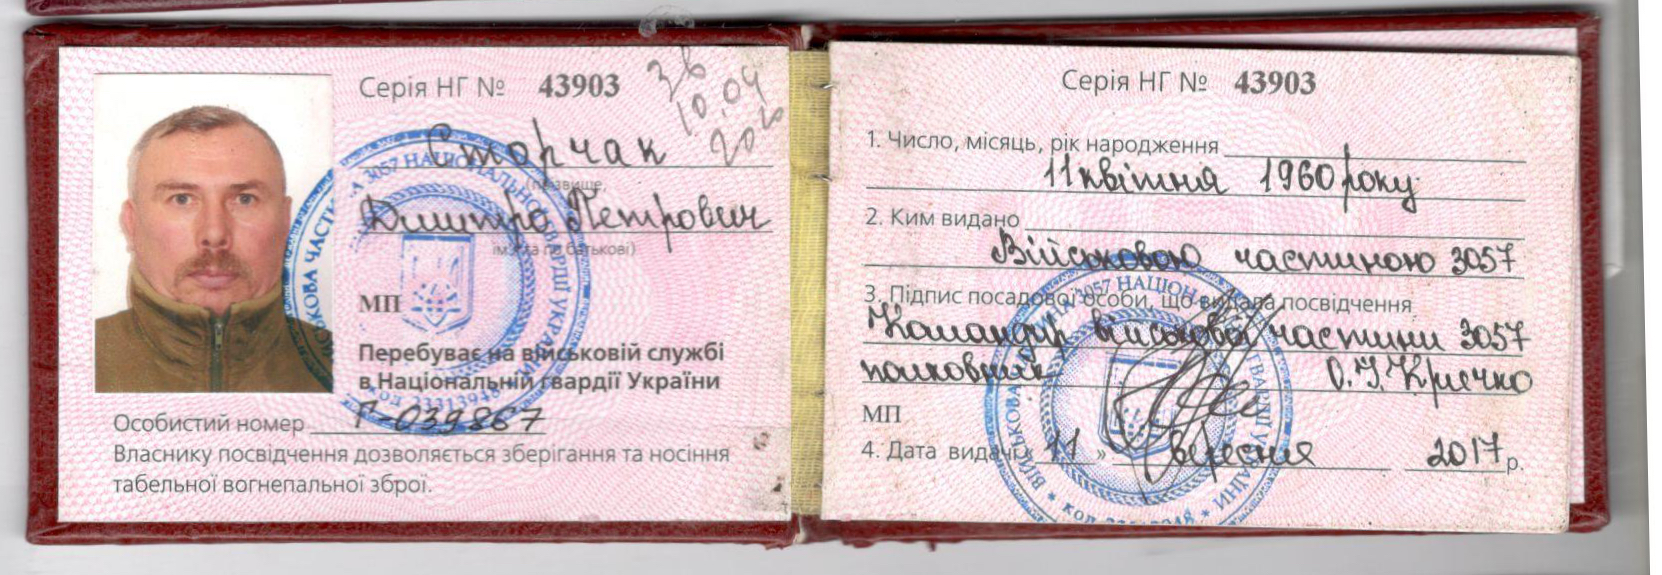 Серія НГ № 43903
Зв
10.04
Сторчак
(прізвище,
Дмитро Петрович
ім'я та по батькові)
МП
Перебуває на військовій службі
в Національній гвардії України
Особистий номер Г-039867
Власнику посвідчення дозволяється зберігання та носіння
табельної вогнепальної зброї.
Серія НГ № 43903
1. Число, місяць, рік народження
11 квітня 1960 року
2. Ким видано
Військовою частиною 3057
3. Підпис посадової особи, що видала посвідчення
Командир військової частини 3057
полковник О.І.Кричко
МП
4. Дата видачі « 11 » вересня 2017 р.